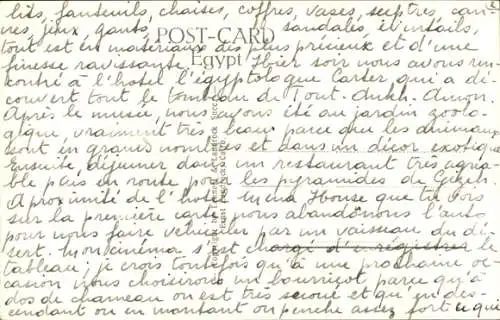 lits, fauteuils, chaises, coffres, vases, sceptres, can-
nes, jeux, gants, sandales, éventails,
POST-CARD
tout est en matériaux des plus précieux et d'une
Egypt
finesse ravissante. Hier soir nous avons ren-
contré à l'hôtel l'égyptologue Carter, qui a dé-
couvert tout le tombeau de Tout-Ankh-Amon.
Après le musée, nous avons été au jardin zoolo-
gique, vraiment très beau parce que les animaux
sont en grand nombres et dans un décor exotique.
Ensuite, déjeuner dans un restaurant très agréa-
ble puis en route pour les pyramides de Gizeh.
A proximité de l'hôtel Mena House que tu vois
sur la première carte nous abandonons l'auto
pour nous faire véhiculer par un vaisseau du dé-
sert. Mon cinéma s'est chargé d'enregistrer le
tableau; je crois toutefois qu'à une prochaine oc-
casion nous choisirons un bourricot parce qu'à
dos de chameau on est très secoué et qu'en des-
cendant ou en montant on penche assez fort ce qui